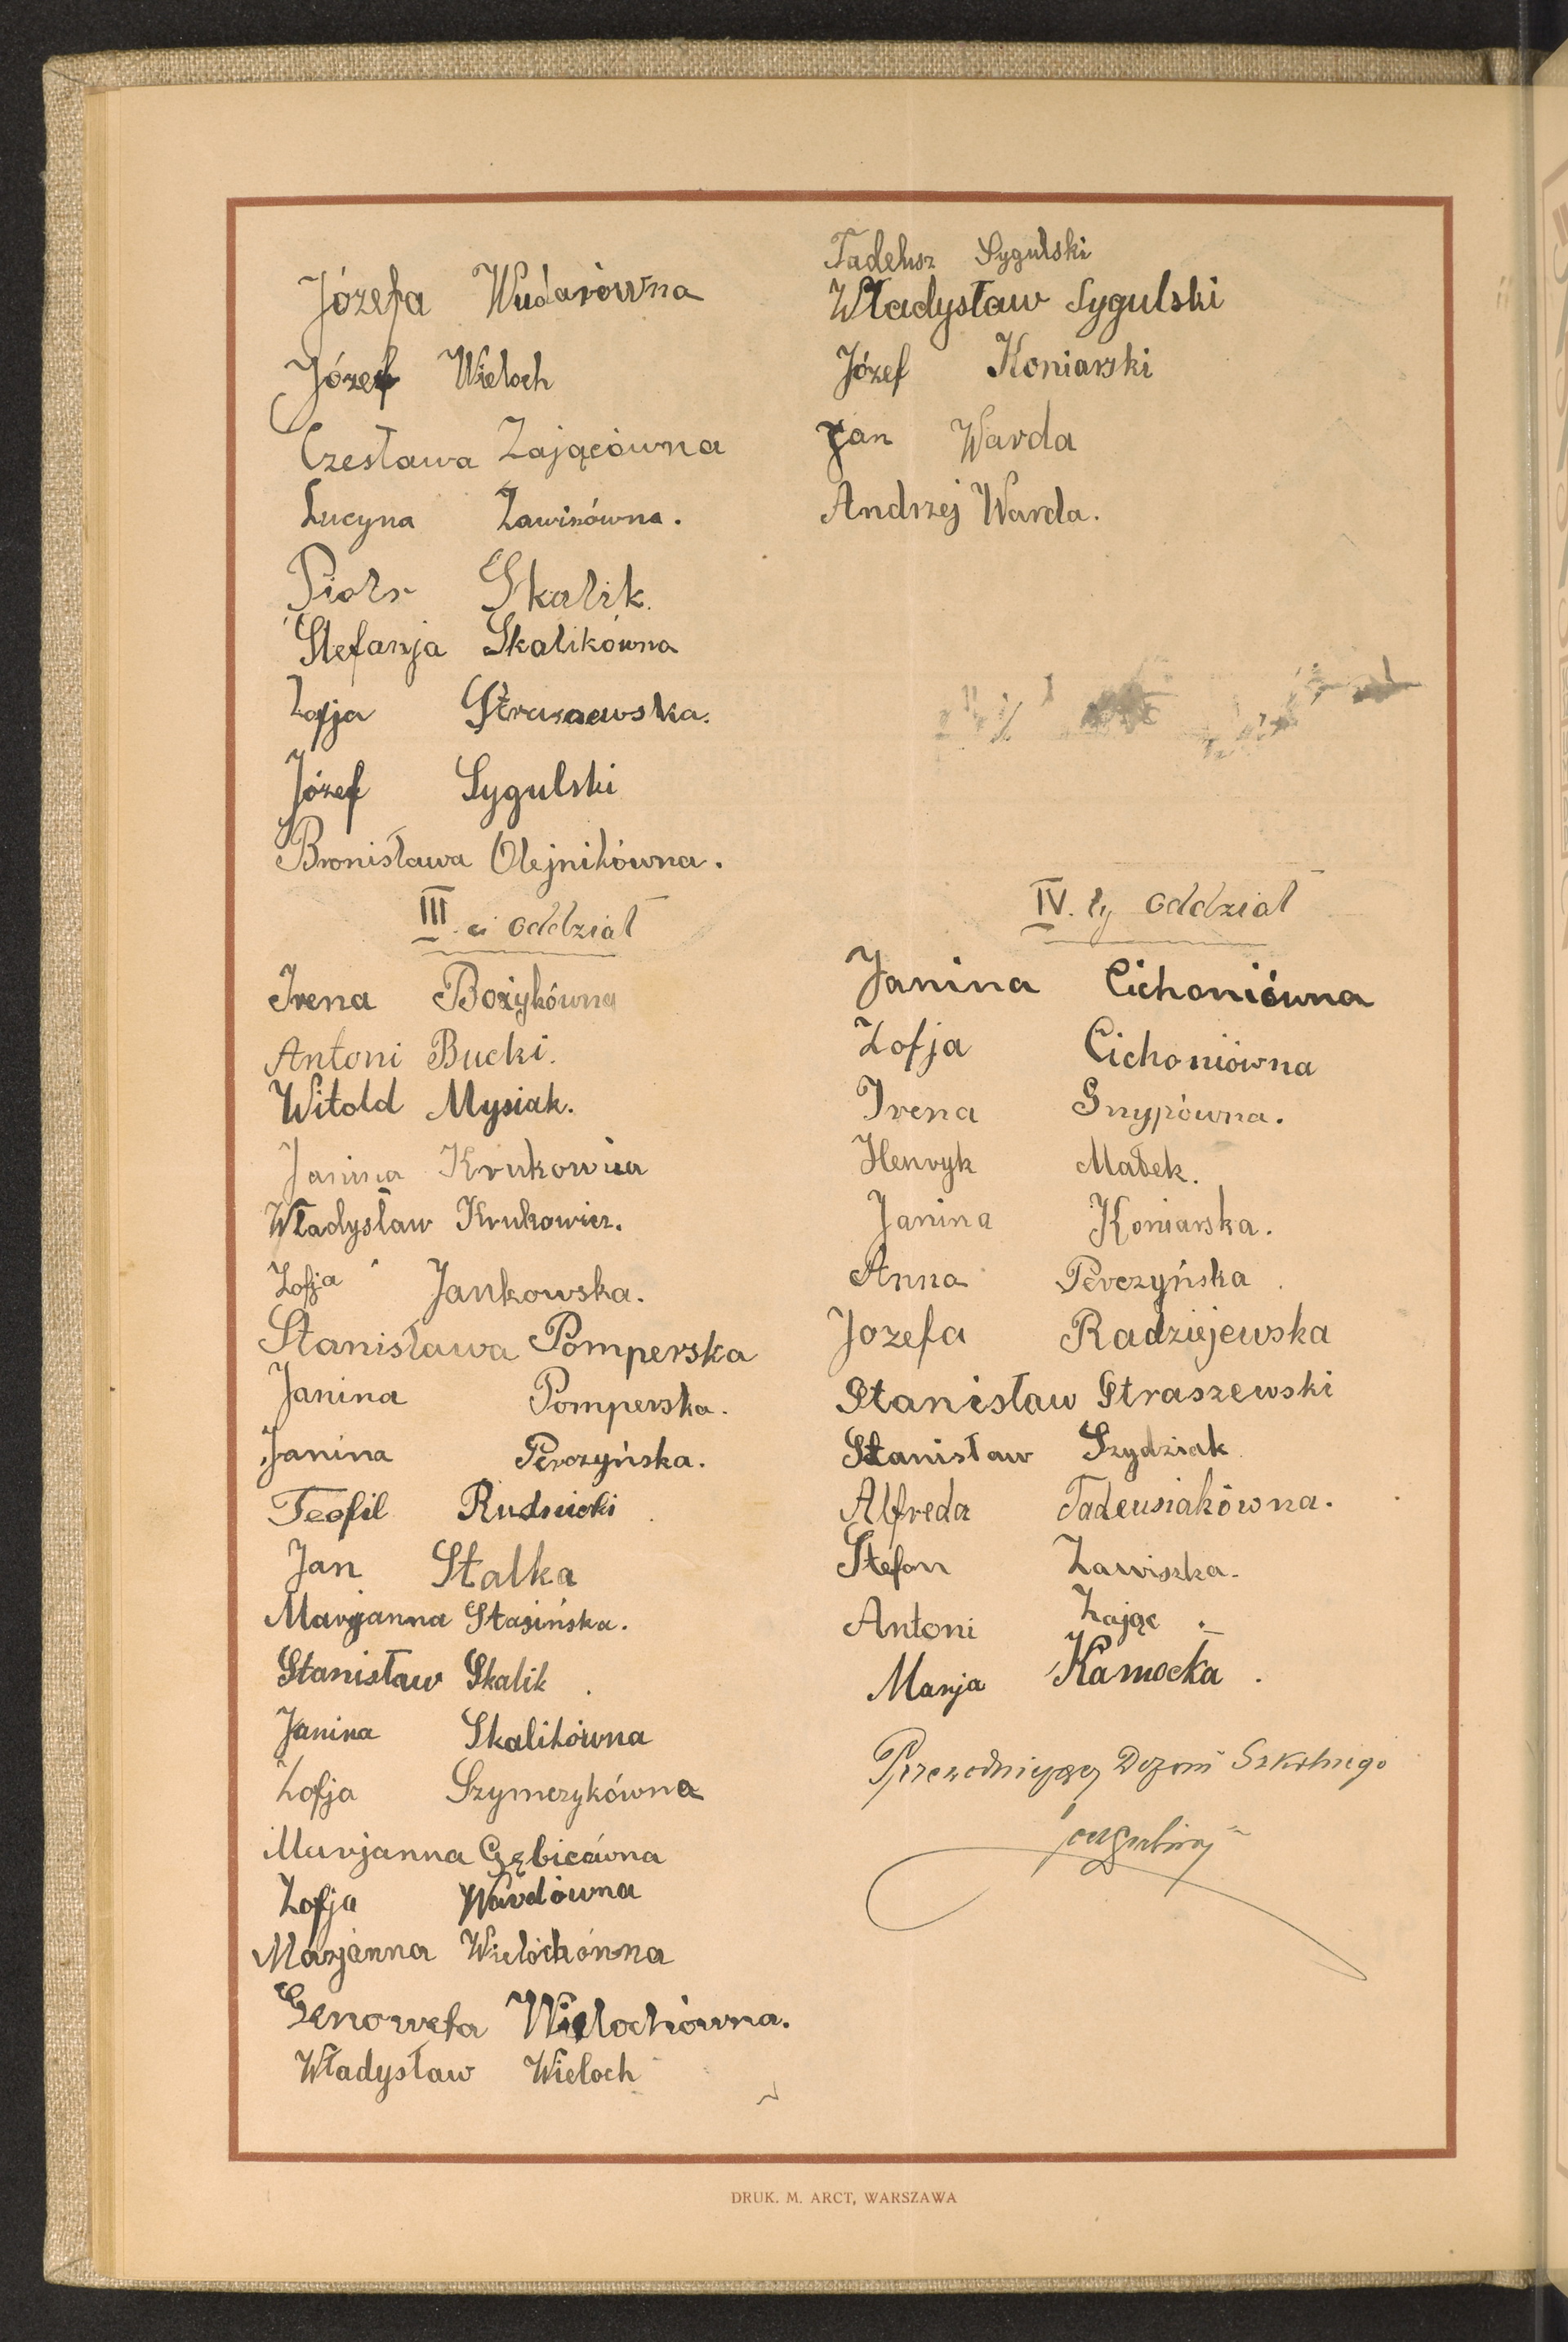 Józefa Wudarówna
Józef Wieloch
Czesława Zającówna
Lucyna Zawisówna.
Piotr Skalik.
Stefanja Skalikówna
Zofja Straszewska.
Józef Sygulski
Bronisława Olejnikówna.
Tadeusz Sygulski
Władysław Sygulski
Józef Koniarski
Jan Warda
Andrzej Warda.
III-ci oddział
Irena Bożykówna
Antoni Bucki.
Witold Mysiak.
Janina Krukowna
Władysław Krukowicz.
Zofja Jankowska.
Stanisława Pomperska
Janina Pomperska.
Janina Perczyńska.
Teofil Rudnicki
Jan Stalka
Marjanna Stasińska.
Stanisław Skalik.
Janina Skalikówna
Zofja Szymczykówna
Marjanna Gębicówna
Zofja Wardówna
Marjanna Wielochówna
Genowefa Wielochówna.
Władysław Wieloch
IV-ty oddział
Janina Cichoniówna
Zofja Cichoniówna
Irena Gnypówna.
Henryk Małek.
Janina Koniarska.
Anna Perczyńska.
Jozefa Radziejewska
Stanisław Straszewski
Stanisław Szydziak
Alfreda Tadeusiakówna.
Stefan Zawiszka.
Antoni Zając.
Marja Kamocka.
Przewodniczący Dozoru Szkolnego
DRUK. M. ARCT, WARSZAWA